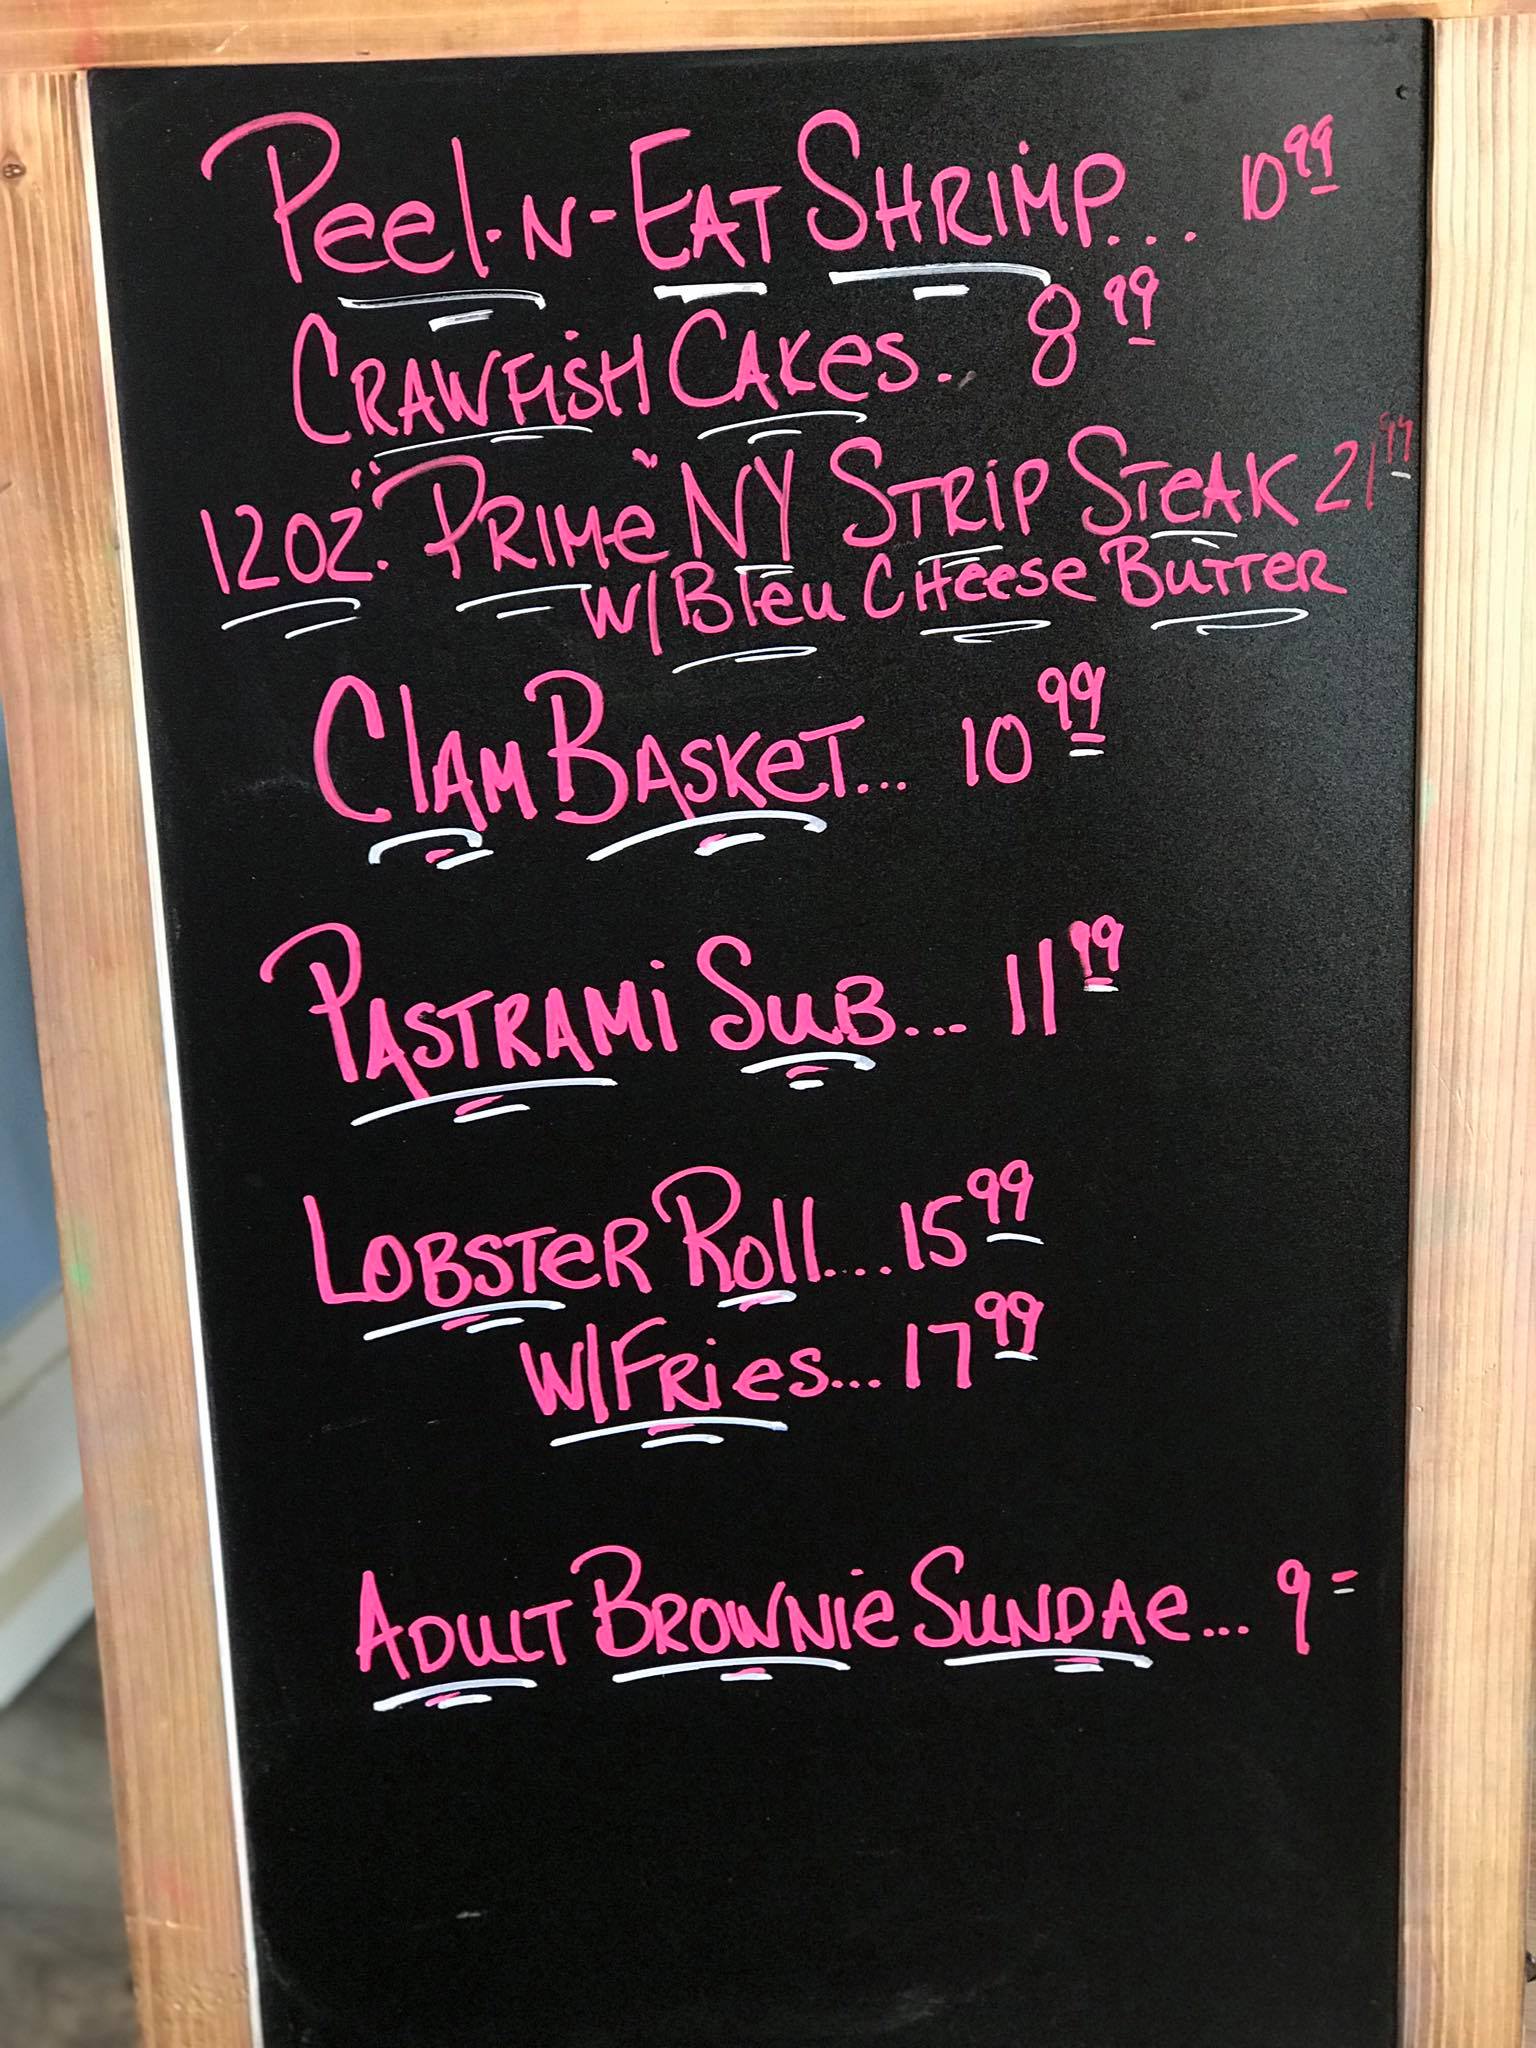 Peel-N-Eat Shrimp... 10 99
Crawfish Cakes.. 8 99
12oz. "Prime" NY Strip Steak 21 99
w/Bleu Cheese Butter
Clam Basket... 10 99
Pastrami Sub... 11 99
Lobster Roll.... 15 99
w/Fries... 17 99
Adult Brownie Sundae... 9 -